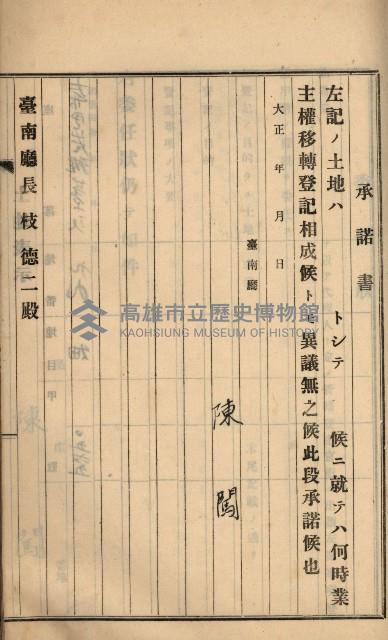 承諾書
左記ノ土地ハ　トシテ　候ニ就テハ何時業
主權移轉登記相成候トモ異議無之候此段承諾候也
大正　年　月　日
臺南廳
陳闖
臺南廳長枝德二殿
高雄市立歷史博物館
KAOHSIUNG MUSEUM OF HISTORY